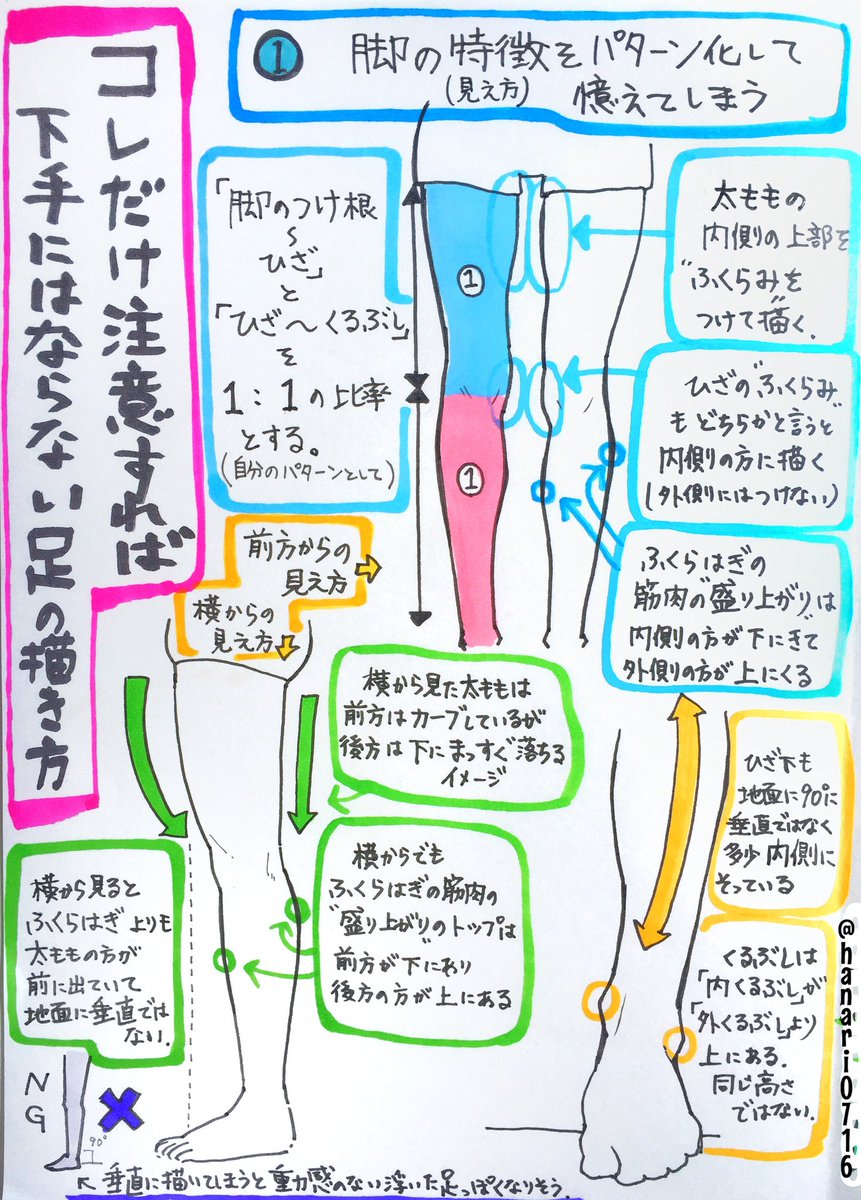 コレだけ注意すれば
下手にはならない足の描き方
① 脚の特徴をパターン化して
(見え方) 憶えてしまう
「脚のつけ根
〜
ひざ」
と
「ひざ〜くるぶし」
を
1：1の比率
とする。
(自分のパターンとして)
①
①
太ももの
内側の上部を
"ふくらみを
つけて"描く.
ひざの"ふくらみ"
もどちらかと言うと
内側の方に描く
(外側にはつけない)
ふくらはぎの
筋肉の"盛り上がり"は
内側の方が下にきて
外側の方が上にくる
前方からの
見え方
横からの
見え方
横から見た太ももは
前方はカーブしているが
後方は下にまっすぐ落ちる
イメージ
横からでも
ふくらはぎの筋肉の
"盛り上がり"のトップは
前方が下にあり
後方の方が上にある
横から見ると
ふくらはぎよりも
太ももの方が
前に出ていて
地面に垂直では
ない.
NG
90°
垂直に描いてしまうと重力感のない浮いた足っぽくなりそう.
ひざ下も
地面に90°に
垂直ではなく
多少内側に
そっている
くるぶしは
「内くるぶし」が
「外くるぶし」より
上にある.
同じ高さ
ではない.
@hanari0716